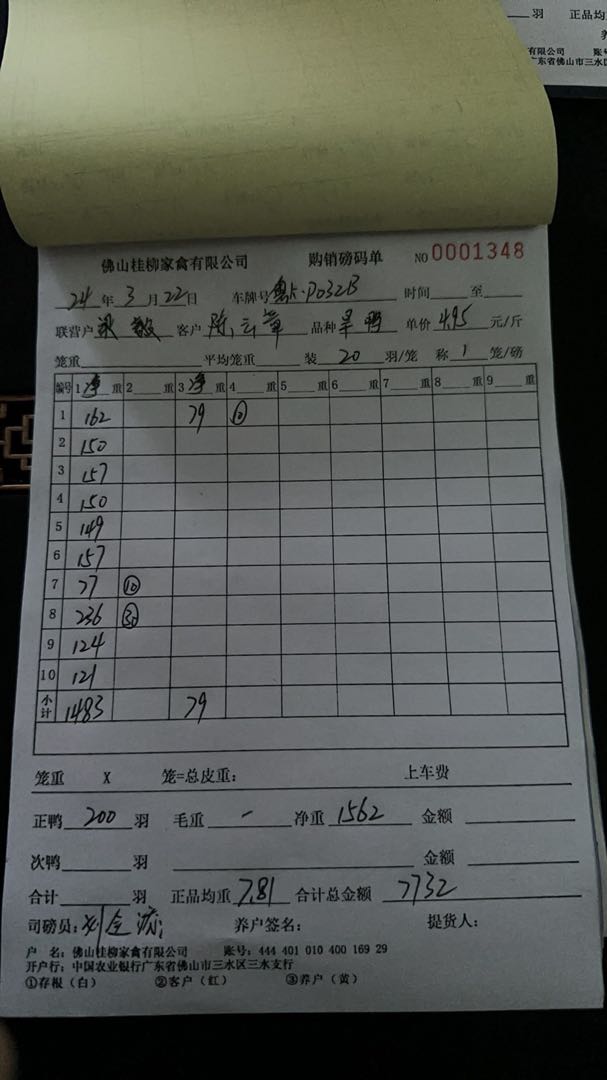 羽 正品均
有限公司 账号
广东省佛山市三水区
佛山桂柳家禽有限公司 购销磅码单 NO 0001348
24年3月22日 车牌号 时间 至
联营户 客户 陈云章 品种 旱鸭 单价 4.95 元/斤
笼重 平均笼重 装 20 羽/笼 称 1 笼/磅
编号 1 净 重 2 重 3 净 重 4 重 5 重 6 重 7 重 8 重 9 重
1 162 79 ⑩
2 150
3 157
4 150
5 149
6 157
7 77 ⑩
8 236 ㉚
9 124
10 121
小计 1483 79
笼重 X 笼=总皮重: 上车费
正鸭 200 羽 毛重 - 净重 1562 金额
次鸭 羽 金额
合计 羽 正品均重 7.81 合计总金额 7732
司磅员: 养户签名: 提货人:
户 名: 佛山桂柳家禽有限公司 账号: 444 401 010 400 169 29
开户行: 中国农业银行广东省佛山市三水区三水支行
①存根(白) ②客户(红) ③养户(黄)